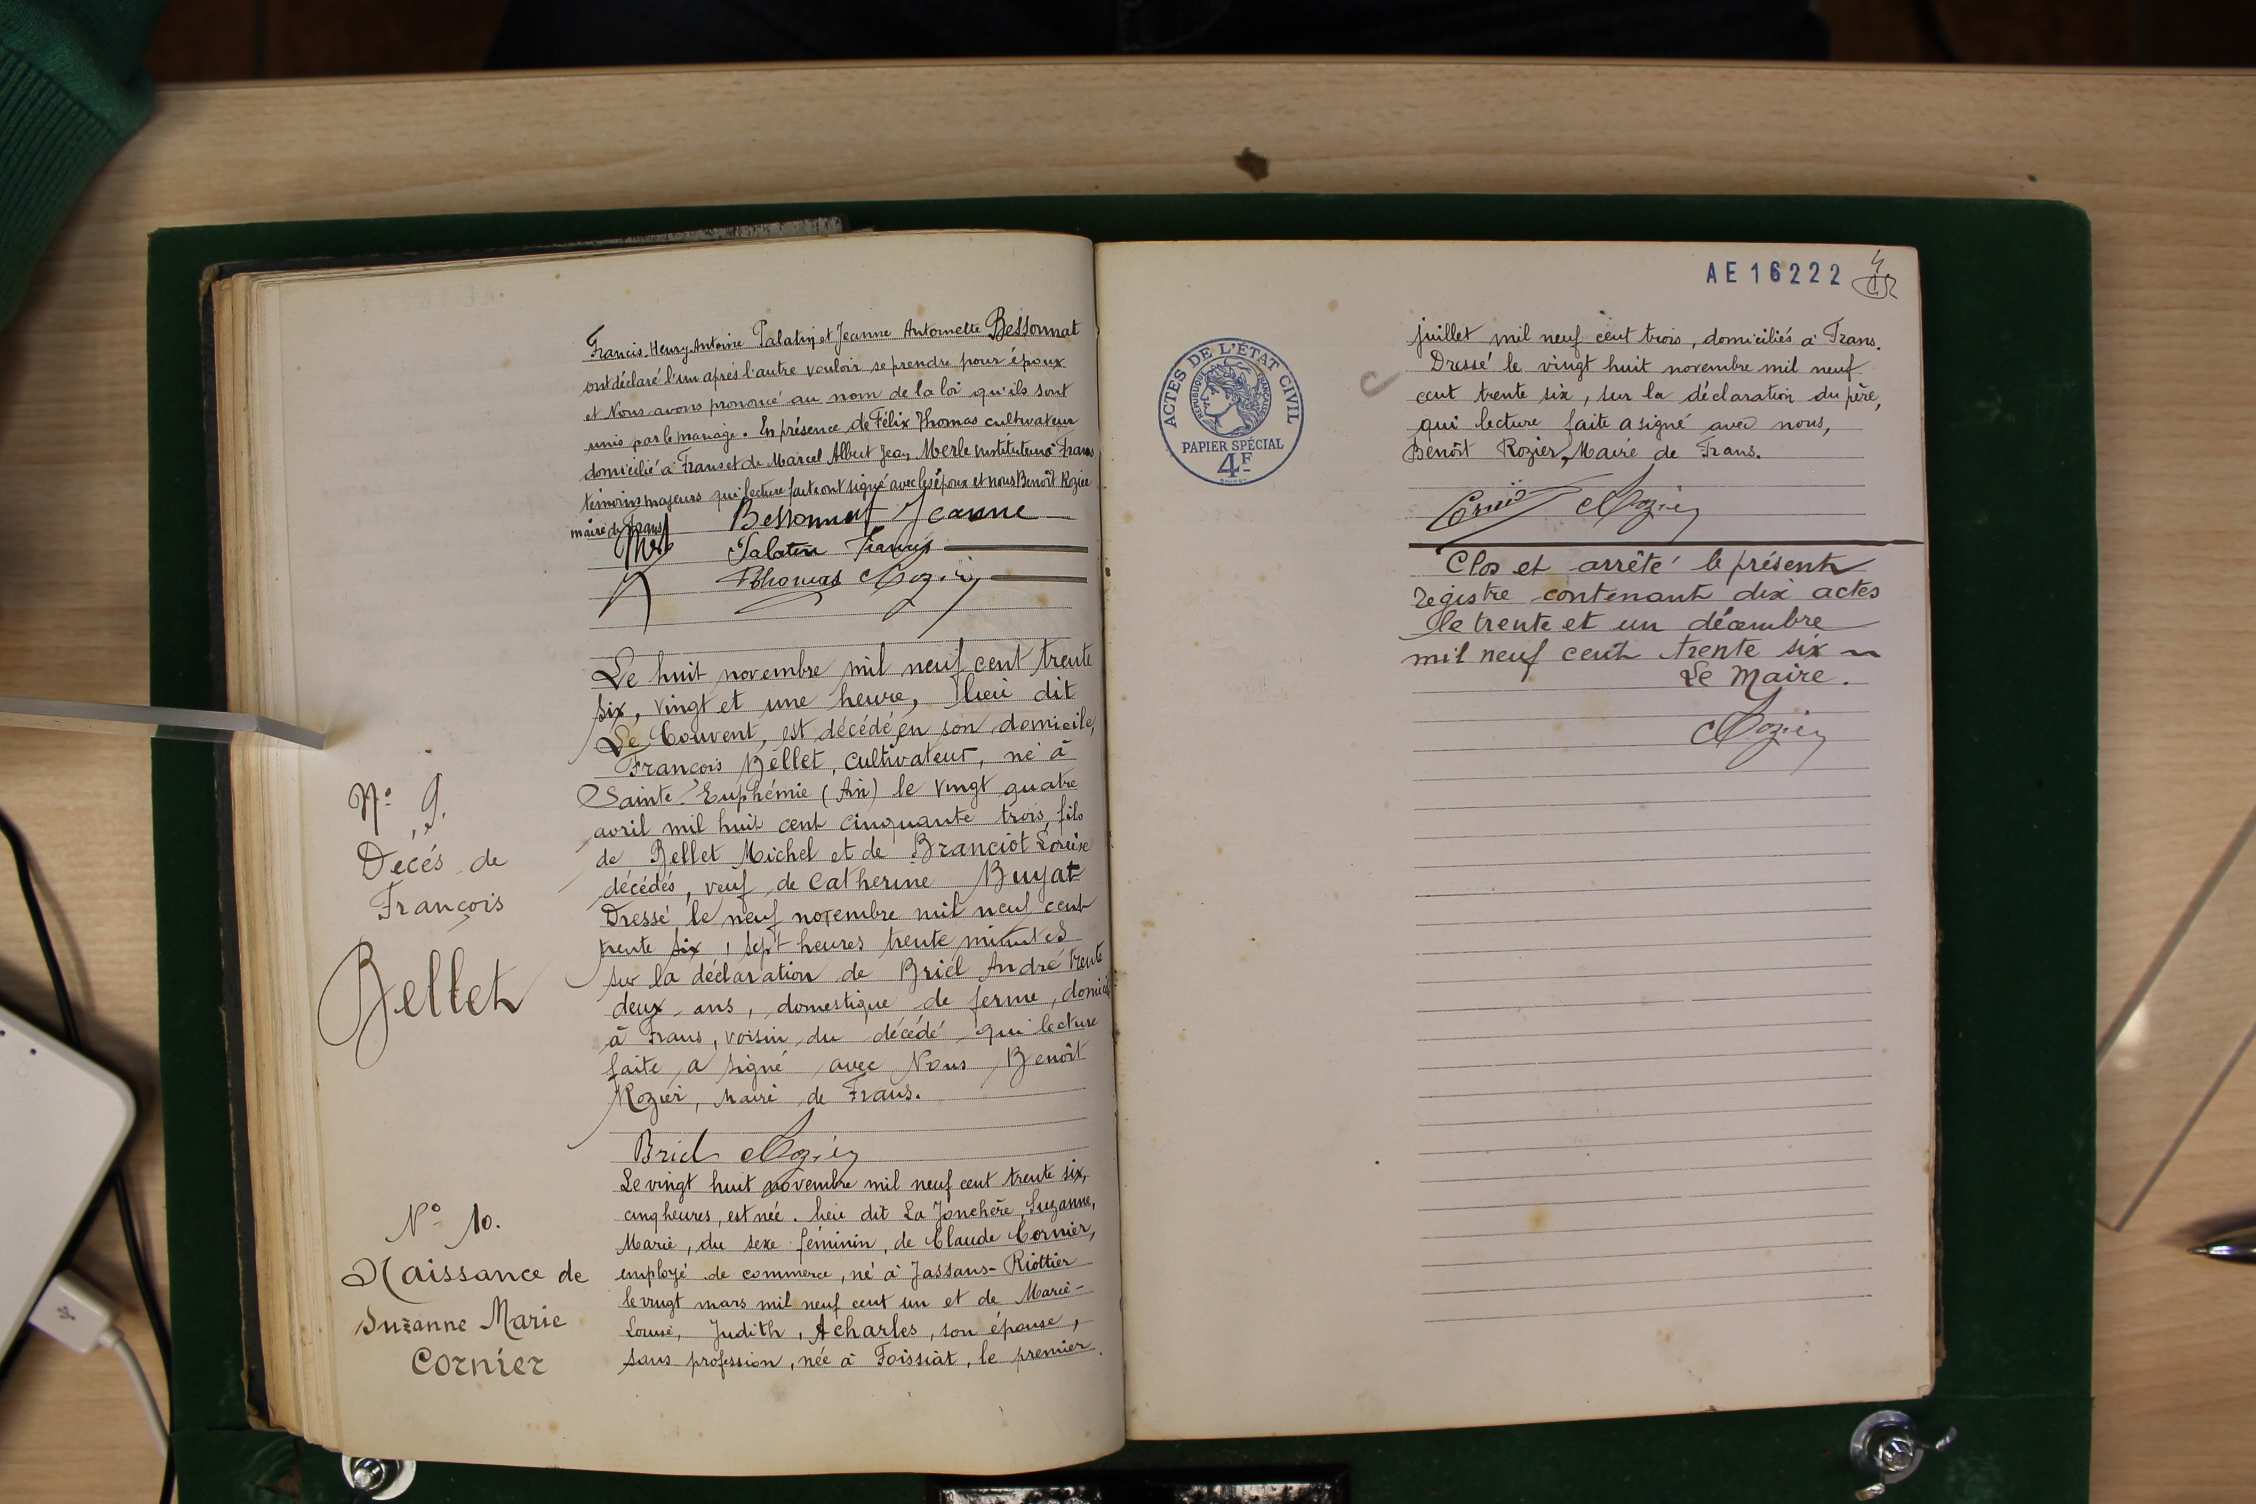 Francis, Henry, Antoine Palatin et Jeanne Antoinette Bessonnat
ont déclaré l'un après l'autre vouloir se prendre pour époux
et Nous avons prononcé au nom de la loi qu'ils sont
unis par le mariage. En présence de Félix Thomas cultivateur
domicilié à Frans et de Marcel Albert Jean Merle instituteur à Frans
témoins majeurs qui lecture faite ont signé avec les époux et nous Benoît Rozier
maire de Frans
Bessonnat Jeanne
Palatin Francis
Thomas Rozier
N° 9.
Décès de
François
Bellet
Le huit novembre mil neuf cent trente
six, vingt et une heure, lieu dit
Le Couvent, est décédé, en son domicile,
François Bellet, cultivateur, né à
Sainte Euphémie (Ain) le vingt quatre
avril mil huit cent cinquante trois, fils
de Bellet Michel et de Branciot Louise
décédés, veuf de Catherine Buyat
Dressé le neuf novembre mil neuf cent
trente six, sept heures trente minutes
sur la déclaration de Briel André trente
deux ans, domestique de ferme, domicilié
à Frans, voisin du décédé qui lecture
faite a signé avec Nous Benoît
Rozier, Maire de Frans.
Briel Rozier
N° 10.
Naissance de
Suzanne Marie
Cornier
Le vingt huit novembre mil neuf cent trente six,
cinq heures, est née, lieu dit La Jonchère, Suzanne,
Marie, du sexe féminin, de Claude Cornier,
employé de commerce, né à Jassans-Riottier
le vingt mars mil neuf cent un et de Marie-
Louise, Judith, Acharles, son épouse,
sans profession, née à Foissiat, le premier
AE 16222
4
ACTES DE L'ÉTAT CIVIL
RÉPUBLIQUE FRANÇAISE
PAPIER SPÉCIAL
4F
juillet mil neuf cent trois, domiciliés à Frans.
Dressé le vingt huit novembre mil neuf
cent trente six, sur la déclaration du père,
qui lecture faite a signé avec nous,
Benoît Rozier, Maire de Frans.
Cornier Rozier
Clos et arrêté le présent
registre contenant dix actes
le trente et un décembre
mil neuf cent trente six
Le Maire.
Rozier